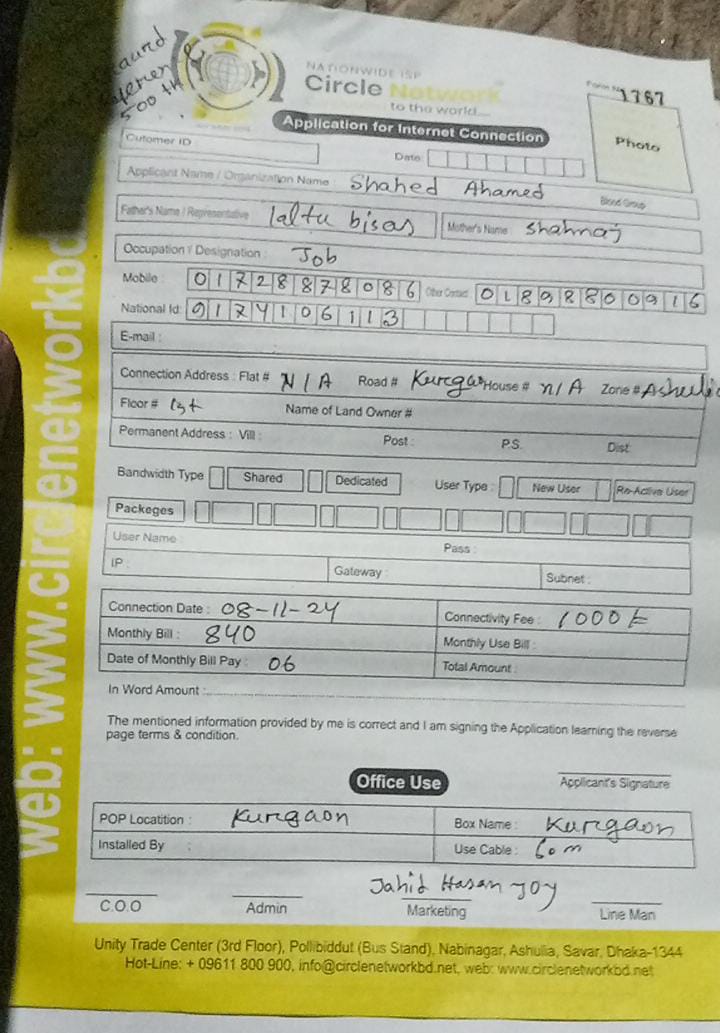 500 tk
NATIONWIDE ISP
Circle Network
to the world....
Form No 1767
Application for Internet Connection
Photo
Cutomer ID
Date:
Applicant Name / Organization Name : Shahed Ahamed
Blood Group
Father's Name / Representative laltu bisas Mother's Name shahnaj
Occupation / Designation : Job
Mobile : 01728878086 Other Contact : 01898800916
National Id: 0174106113
E-mail :
Connection Address : Flat # N/A Road # Kurgao House # n/A Zone # Ashulia
Floor # 1st Name of Land Owner #
Permanent Address : Vill : Post : P.S. Dist
Bandwidth Type Shared Dedicated User Type : New User Re-Active User
Packeges
User Name : Pass :
IP : Gateway : Subnet :
Connection Date : 08-11-24 Connectivity Fee : 1000 tk
Monthly Bill : 840 Monthly Use Bill :
Date of Monthly Bill Pay : 06 Total Amount :
In Word Amount :
The mentioned information provided by me is correct and I am signing the Application learning the reverse
page terms & condition.
Applicant's Signature
Office Use
POP Locatition : Kurgaon Box Name : Kurgaon
Installed By : Use Cable : 60 m
Jahid Hasan Joy
C.O.O Admin Marketing Line Man
Unity Trade Center (3rd Floor), Pollibiddut (Bus Stand), Nabinagar, Ashulia, Savar, Dhaka-1344
Hot-Line: + 09611 800 900, info@circlenetworkbd.net, web: www.circlenetworkbd.net
web: www.circlenetworkbd